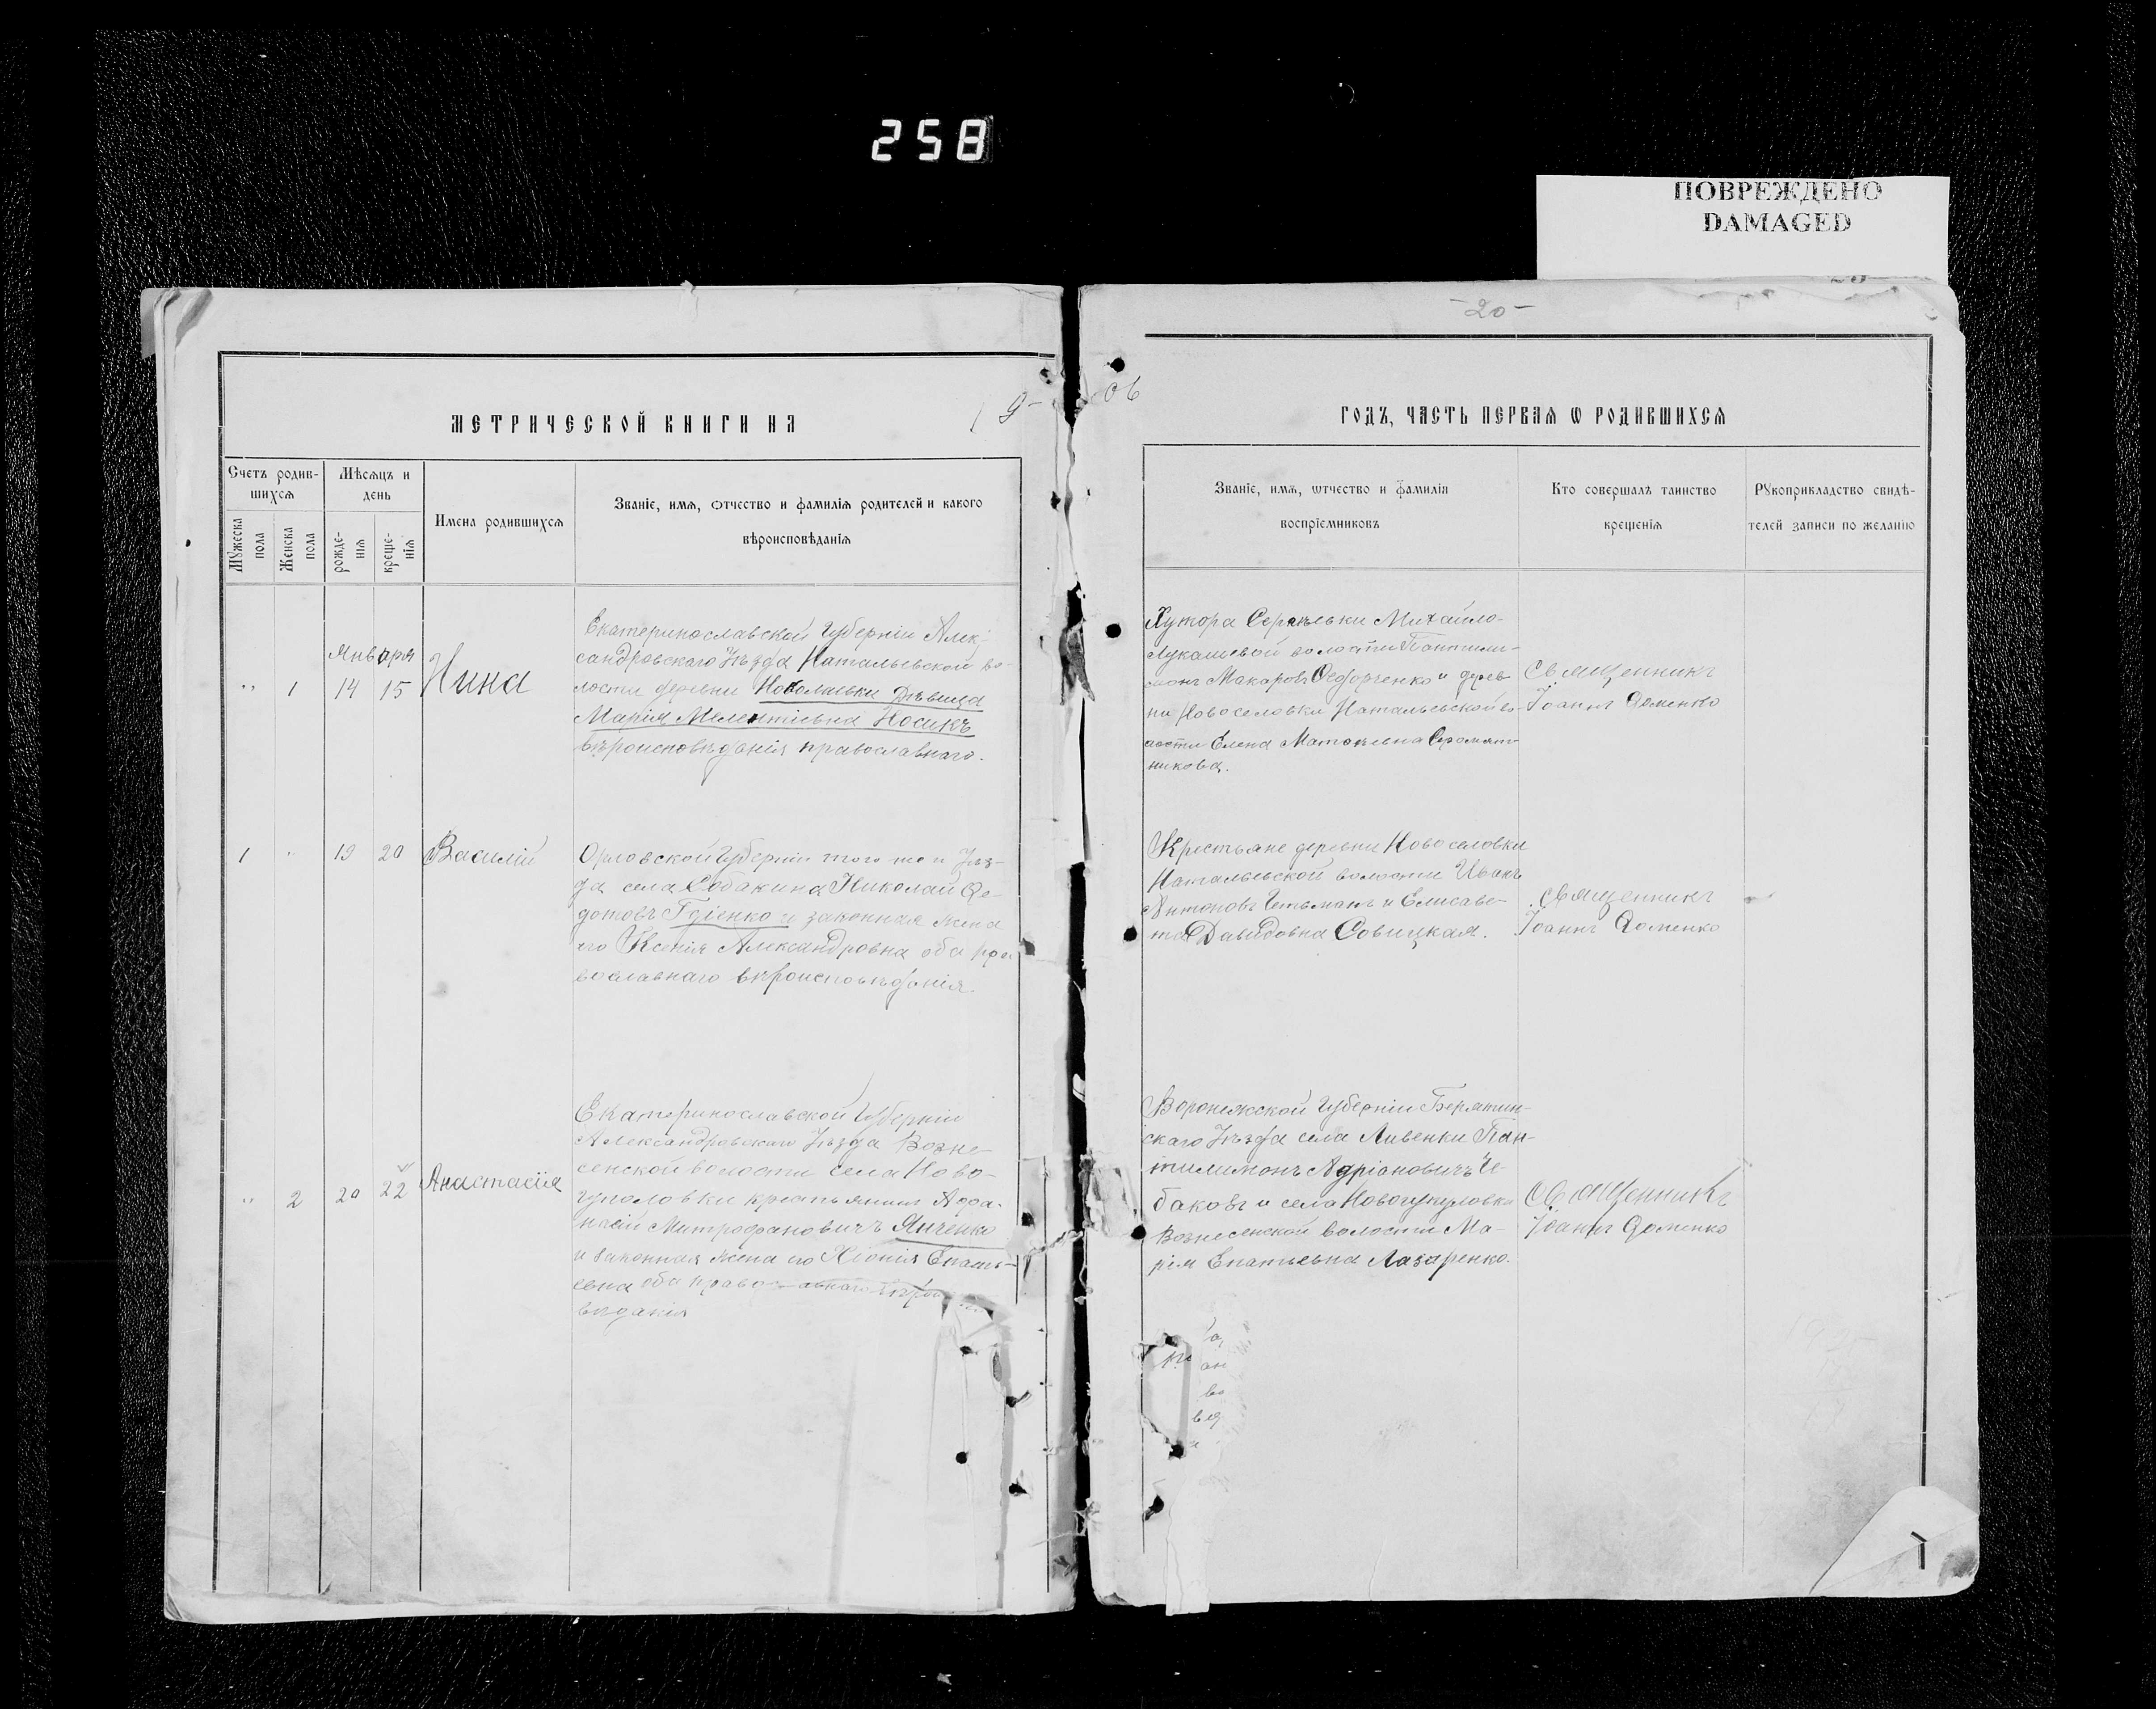 258
ПОВРЕЖДЕНО
DAMAGED
-20-
МЕТРИЧЕСКОЙ КНИГИ НА 19
06 ГОДЪ, ЧАСТЬ ПЕРВАЯ Ѡ РОДИВШИХСЯ
Счетъ родив-
шихся
Мѣсяцъ и
день
Мужеска
пола
Женска
пола
рожде-
нія
креще-
нія
Имена родившихся
Званіе, имя, отчество и фамилія родителей и какого
вѣроисповѣданія
Званіе, имя, ѿчество и фамилія
воспріемниковъ
Кто совершалъ таинство
крещенія
Рукоприкладство свидѣ-
телей записи по желанію
Января
" 1 14 15 Нина
Екатеринославской Губерніи Алек-
сандровскаго Уѣзда Натальевской во-
лости деревни дѣвица
Марія Мелентіевна Носикъ
вѣроисповѣданія православнаго.
Хутора Михайло-
Лукашевой волости Пантили-
монъ Макаровъ Федорченко и дерев-
ни Новоселовки Натальевской во-
лости Елена
никова.
Священникъ
Іоаннъ Доменко
1 " 19 20 Василій
Орловской Губерніи того же и Уѣз-
да села Собакина Николай Ѳе-
дотовъ и законная жена
его Ксенія Александровна оба пра
вославнаго вѣроисповѣданія.
Крестьяне деревни Новоселовки
Натальевской волости Иванъ
Антоновъ Гетьманъ и Елисаве-
та Давидовна Совицкая.
Священникъ
Іоаннъ Доменко
" 2 20 22 Анастасіа
Екатеринославской Губерніи
Александровскаго Уѣзда Возне-
сенской волости села Ново-
гуполовки крестьянинъ Афа-
насій Митрофановичъ Янченко
и законная жена его Хіонія Игнать-
евна оба
вѣданія
Воронежской Губерніи
скаго Уѣзда села Ливенки Пан-
тилимонъ Адріановичъ Че-
баковъ и села Новогуполовки
Вознесенской волости Ма-
рія Игнатьевна Лазаренко.
Священникъ
Іоаннъ Доменко